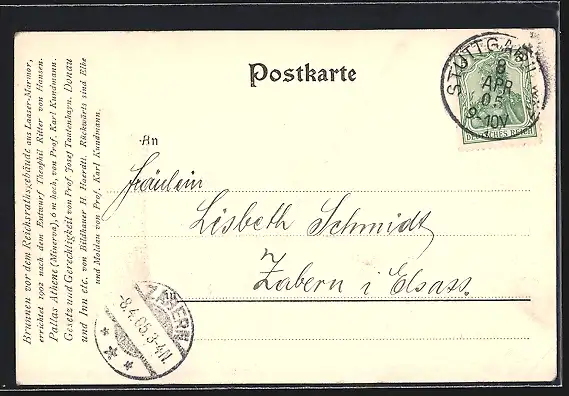 Brunnen vor dem Reichsrathsgebäude aus Laaser-Marmor,
errichtet 1902 nach dem Entwurf Theophil Ritter von Hansen.
Pallas Athene (Minerva), 6 m hoch, von Prof. Karl Kundmann.
Gesetz und Gerechtigkeit von Prof. Josef Tautenhayn. Donau
und Inn etc. von Bildhauer H. Haerdtl. Rückwärts sind Elbe
und Moldau von Prof. Karl Kundmann.
Postkarte
STUTTGART
8
APR
05
9-10V
DEUTSCHES REICH
An
Fräulein
Lisbeth Schmidt
Zabern i Elsass.
ZABERN
8.4.05.3-4N.